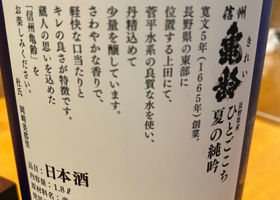 信州
亀齢
きれい
長野県産
ひとごこち
夏の純吟
寛文5年(1665年)創業。
長野県の東部に
位置する上田にて、
菅平水系の良質な水を使い、
丹精込めて
少量を醸しています。
さわやかな香りで、
軽快な口当たりと
キレの良さが特徴です。
蔵人の思いを込めた
「信州亀齢」を
お楽しみください。
杜氏 岡崎美都里
品目：日本酒
内容量：1.8ℓ
原材料名：